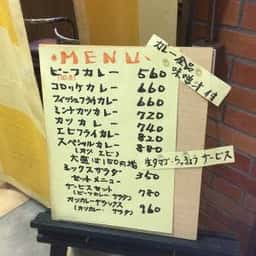 ・MENU・
カレー全品
味噌汁付
ビーフカレー 560
コロッケカレー 660
フィッシュフライカレー 660
ミンチカツカレー 720
カツカレー 740
エビフライカレー 820
スペシャルカレー 880
(カツ エビ)
大盛は150円増
生タマゴ・らっきょうサービス
ミックスサラダ 350
セットメニュー
サービスセット 780
(ビーフカレー サラダ)
カツカレーデラックス 960
(カツカレー サラダ)